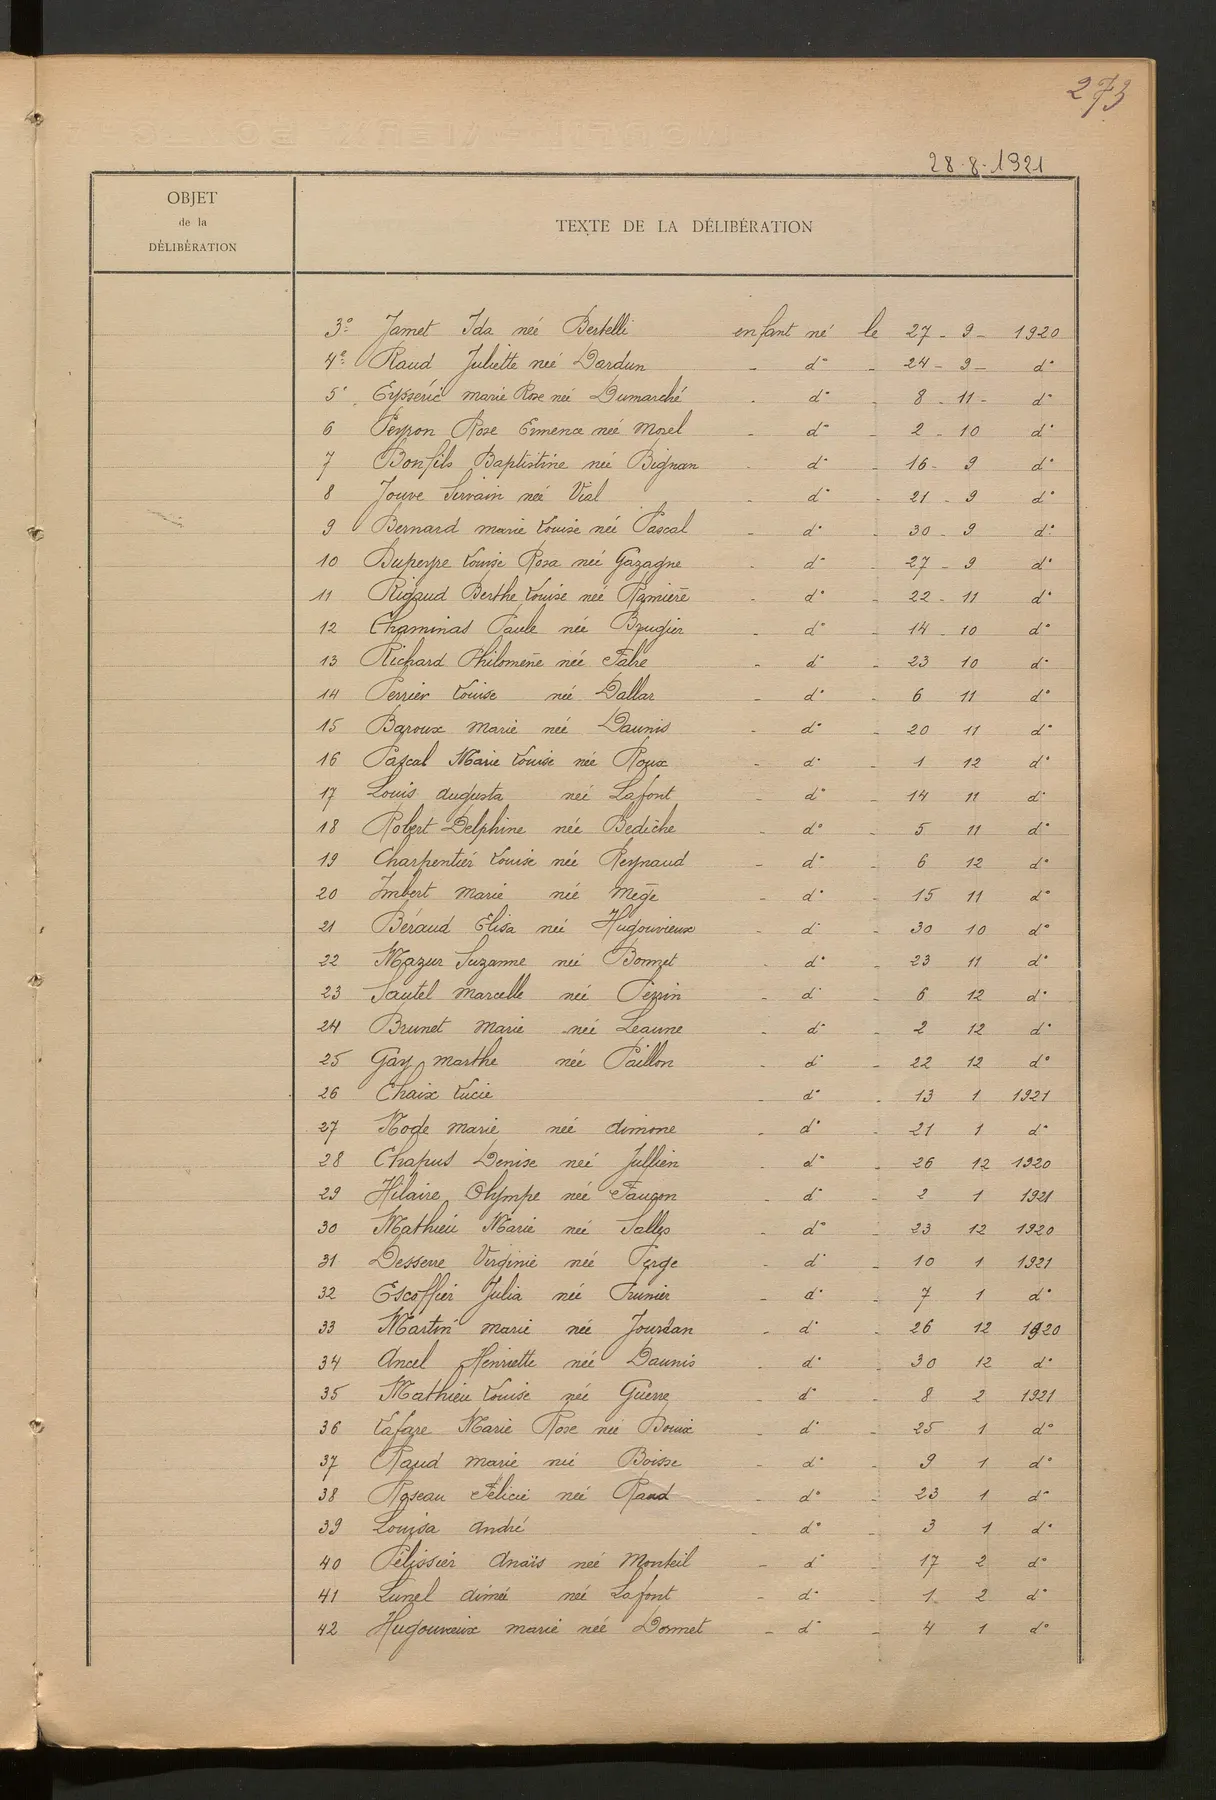 273
28-8-1921
OBJET
de la
DÉLIBÉRATION
TEXTE DE LA DÉLIBÉRATION
3° Jamet Ida née Bertelli enfant né le 27 - 9 - 1920
4° Raud Juliette née Dardun - d° - 24 - 9 - d°
5° Eysséric marie Rose née Dumarché - d° - 8 - 11 - d°
6 Peyron Rose Ermence née Morel - d° - 2 - 10 d°
7 Bonfils Baptistine née Bignan - d° - 16 - 9 d°
8 Jouve Servain née Vial - d° - 21 - 9 d°
9 Bernard marie Louise née Pascal - d° - 30 - 9 d°
10 Dupeyre Louise Rosa née Gazagne - d° - 27 - 9 d°
11 Rigaud Berthe Louise née Ramière - d° - 22 - 11 d°
12 Chaminas Paule née Brugier - d° - 14 - 10 d°
13 Richard Philomène née Fabre - d° - 23 10 d°
14 Perrier Louise née Dallar - d° - 6 11 d°
15 Baroux Marie née Daunis - d° - 20 11 d°
16 Pascal Marie Louise née Roux - d° - 1 12 d°
17 Louis augusta née Lafont - d° - 14 11 d°
18 Robert Delphine née Bedèche - d° - 5 11 d°
19 Charpentier Louise née Reynaud - d° - 6 12 d°
20 Imbert Marie née Mège - d° - 15 11 d°
21 Béraud Elisa née Hugouvieux - d° - 30 10 d°
22 Mazur Suzanne née Bonnet - d° - 23 11 d°
23 Sautel Marcelle née Perrin - d° - 6 12 d°
24 Brunet Marie née Leaune - d° - 2 12 d°
25 Gay marthe née Paillon - d° - 22 12 d°
26 Chaix Lucie - d° - 13 1 1921
27 Node Marie née aimone - d° - 21 1 d°
28 Chapus Denise née Jullien - d° - 26 12 1920
29 Hilaire Olympe née Faucon - d° - 2 1 1921
30 Mathieu Marie née Salles - d° - 23 12 1920
31 Desserre Virginie née Ferge - d° - 10 1 1921
32 Escoffier Julia née Prunier - d° - 7 1 d°
33 Martin marie née Jourdan - d° - 26 12 1920
34 Ancel Henriette née Daunis - d° - 30 12 d°
35 Mathieu Louise née Guerre - d° - 8 2 1921
36 Lafare Marie Rose née Bouix - d° - 25 1 d°
37 Raud marie née Boisse - d° - 9 1 d°
38 Roseau Félicie née Raud - d° - 23 1 d°
39 Louisa André - d° - 3 1 d°
40 Pélissier Anaïs née Monteil - d° - 17 2 d°
41 Lunel aimée née Lafont - d° - 1 2 d°
42 Hugouvieux marie née Dormet - d° - 4 1 d°